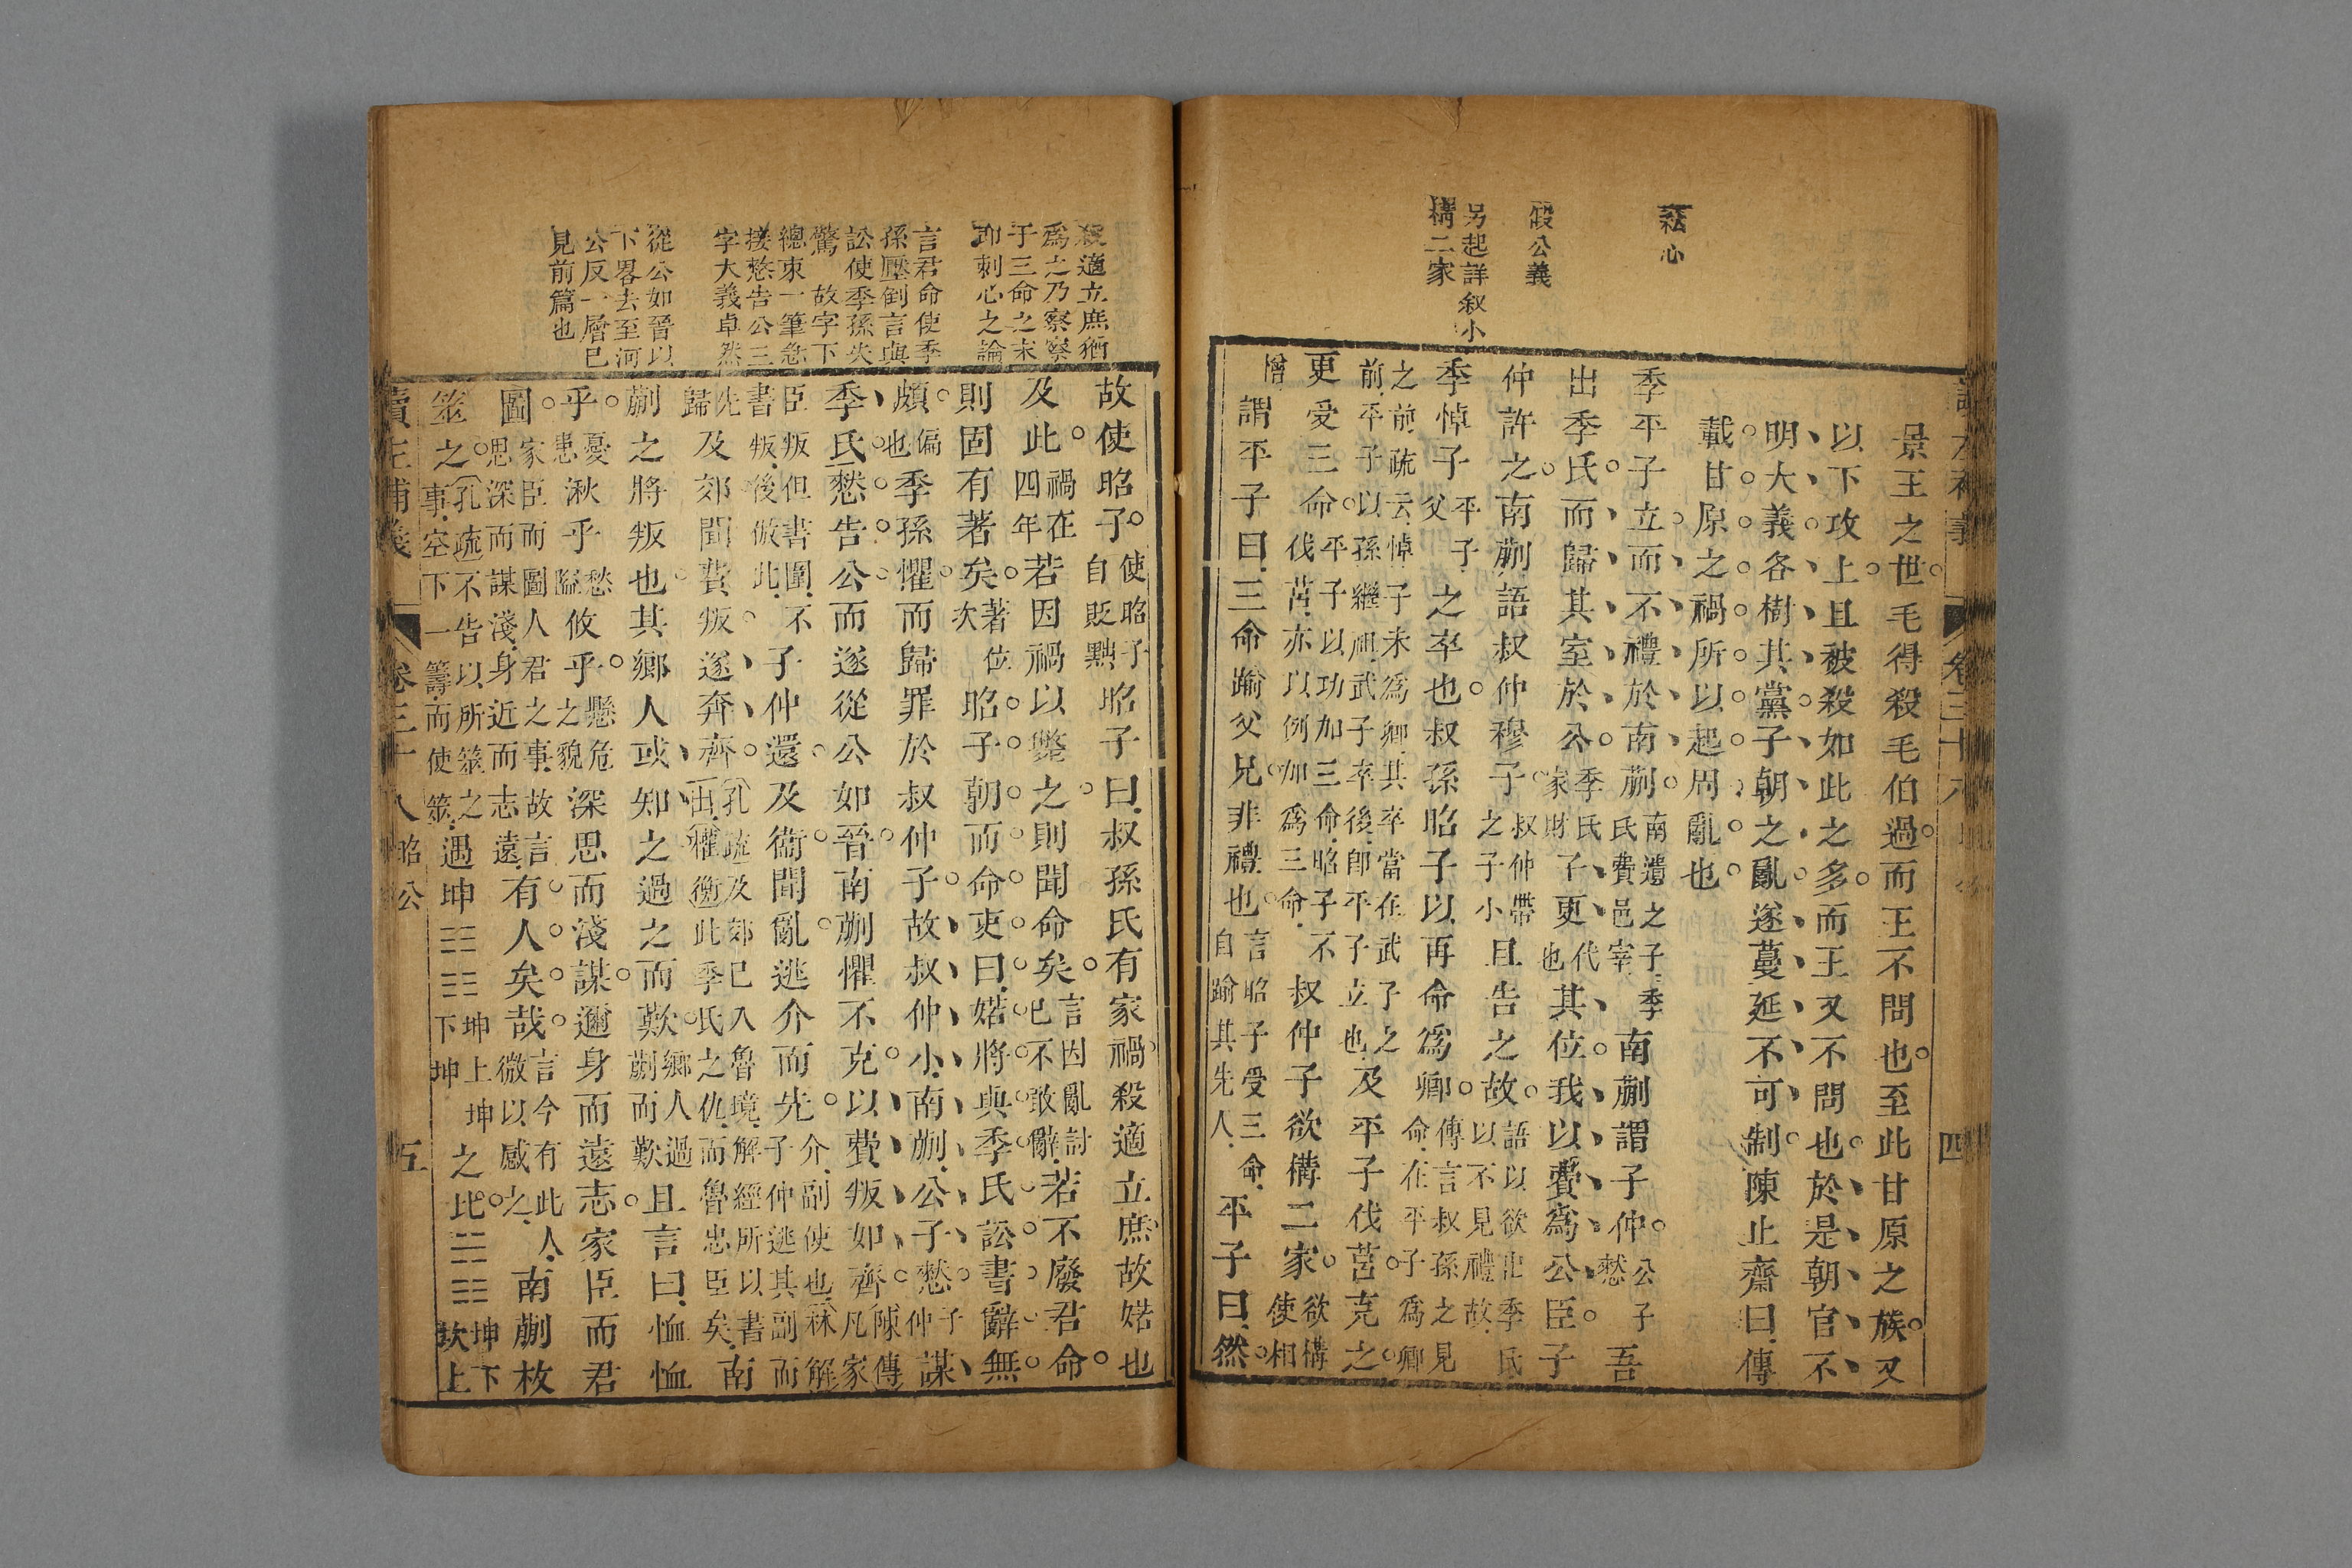 景王之世毛得殺毛伯過而王不問也至此甘原之族又
以下攻上且被殺如此之多而王又不問也於是朝官不
明大義各樹其黨子朝之亂遂蔓延不可制陳止齋曰傳
載甘原之禍所以起周亂也
季平子立而不禮於南蒯南遺之子季氏費邑宰南蒯謂子仲公子憖吾
出季氏而歸其室於公季氏家財子更代也其位我以費爲公臣子
仲許之南蒯語叔仲穆子叔仲帶之子小且告之故語以欲出季氏以不見禮故
季悼子平子父之卒也叔孫昭子以再命爲卿傳言叔孫之見命在平子爲卿
之前疏云悼子未爲卿其卒當在武子之前平子以孫繼祖武子卒後即平子立也及平子伐莒克之
更受三命平子以功加三命昭子不伐莒亦以例加爲三命叔仲子欲構二家欲構使相
憎謂平子曰三命踰父兄非禮也言昭子受三命自踰其先人平子曰然
慭心
假公義
另起詳叙小
構二家
四
故使昭子使昭子自貶黜昭子曰叔孫氏有家禍殺適立庶故婼也
及此禍在四年若因禍以斃之則聞命矣言因亂討己不敢辭若不廢君命
則固有著矣著位次昭子朝而命吏曰婼將與季氏訟書辭無
頗偏也季孫懼而歸罪於叔仲子故叔仲小南蒯公子憖子仲謀
季氏憖告公而遂從公如晉南蒯懼不克以費叛如齊陳傳凡家
臣叛但書圍不書叛後倣此子仲還及衞聞亂逃介而先介副使也林解子仲逃其副而
先歸及郊聞費叛遂奔齊孔疏及郊已入魯境解經所以書出懼衡此季氏之仇而魯忠臣矣南
蒯之將叛也其鄉人或知之過之而歎鄉人過蒯而歎且言曰恤恤
乎憂患湫乎愁隘攸乎懸危之貌深思而淺謀邇身而遠志家臣而君
圖家臣而圖人君之事故言思深而謀淺身近而志遠有人矣哉言今有此人微以感之南蒯枚
筮之孔疏不告以所筮之事空下一籌而使筮遇坤☷☷坤上坤下坤之比☵☷坤下坎上
殺適立庶猶
爲之乃察察
于三命之末
卽刺心之論
言君命使季
孫壓倒言與
訟使季孫失
驚故字下
總束一筆怱
接憖告公三
字大義卓然
從公如晉以
下畧去至河
公反一層已
見前篇也
讀左補義
卷三十八昭公
五